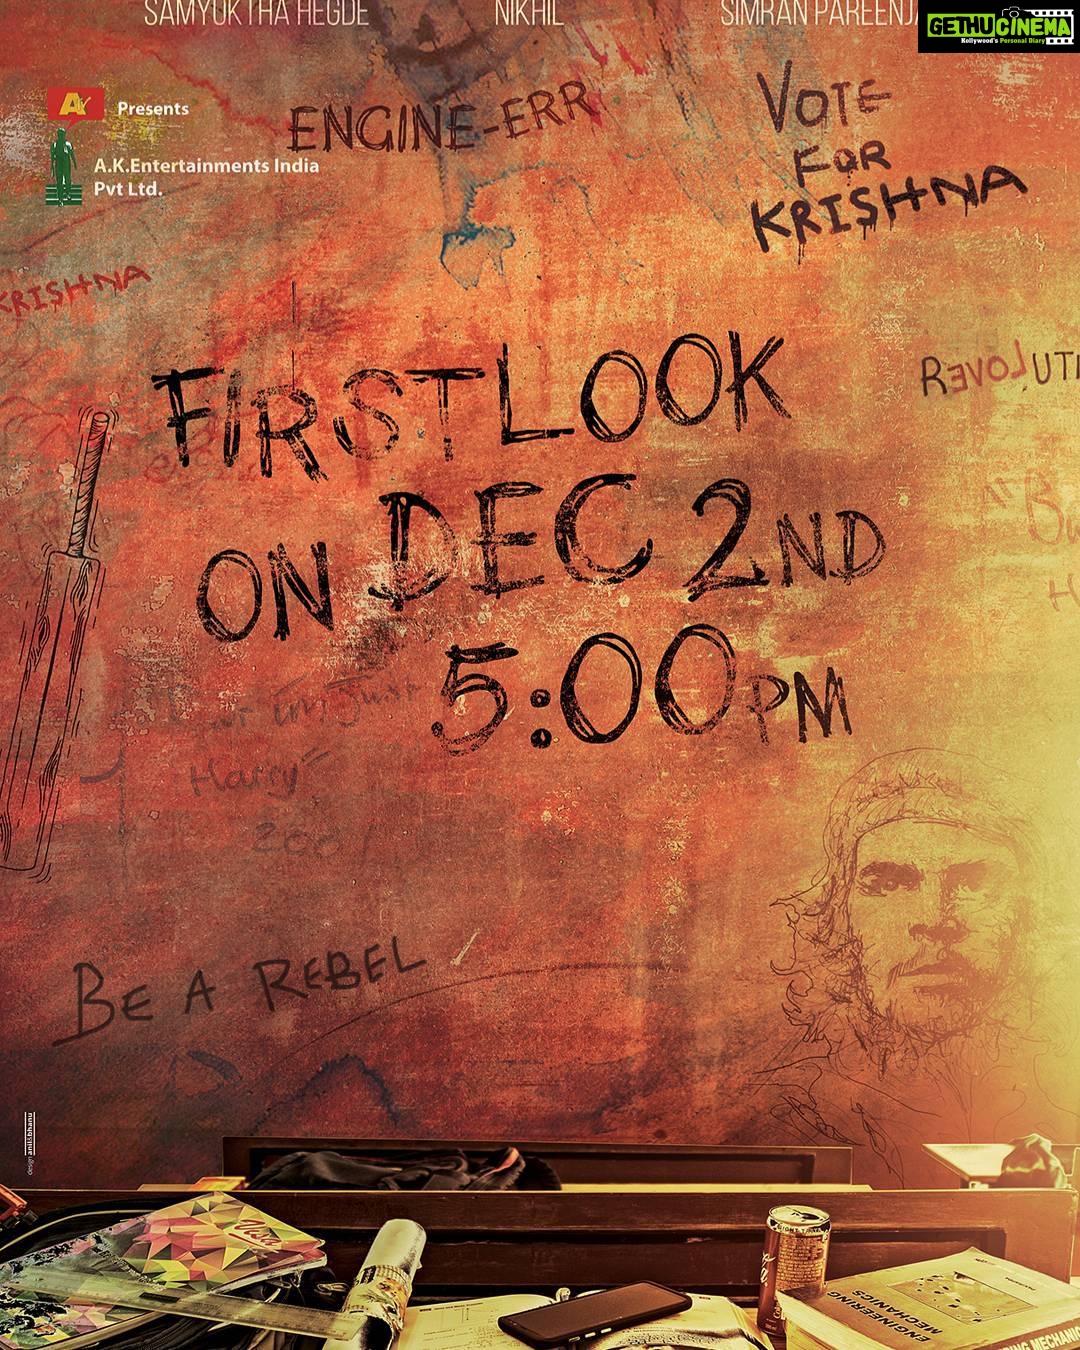 SAMYUKTHA HEGDE NIKHIL SIMRAN PAREENJA
GETHUCINEMA
Kollywood's Personal Diary
AK Presents
A.K.Entertainments India
Pvt Ltd.
ENGINE-ERR
VOTE
FOR
KRISHNA
KRISHNA
REVOLUTI
FIRST LOOK
ON DEC 2ND
5:00PM
Harry
BE A REBEL
design anil&bhanu
ENGINEERING
MECHANICS